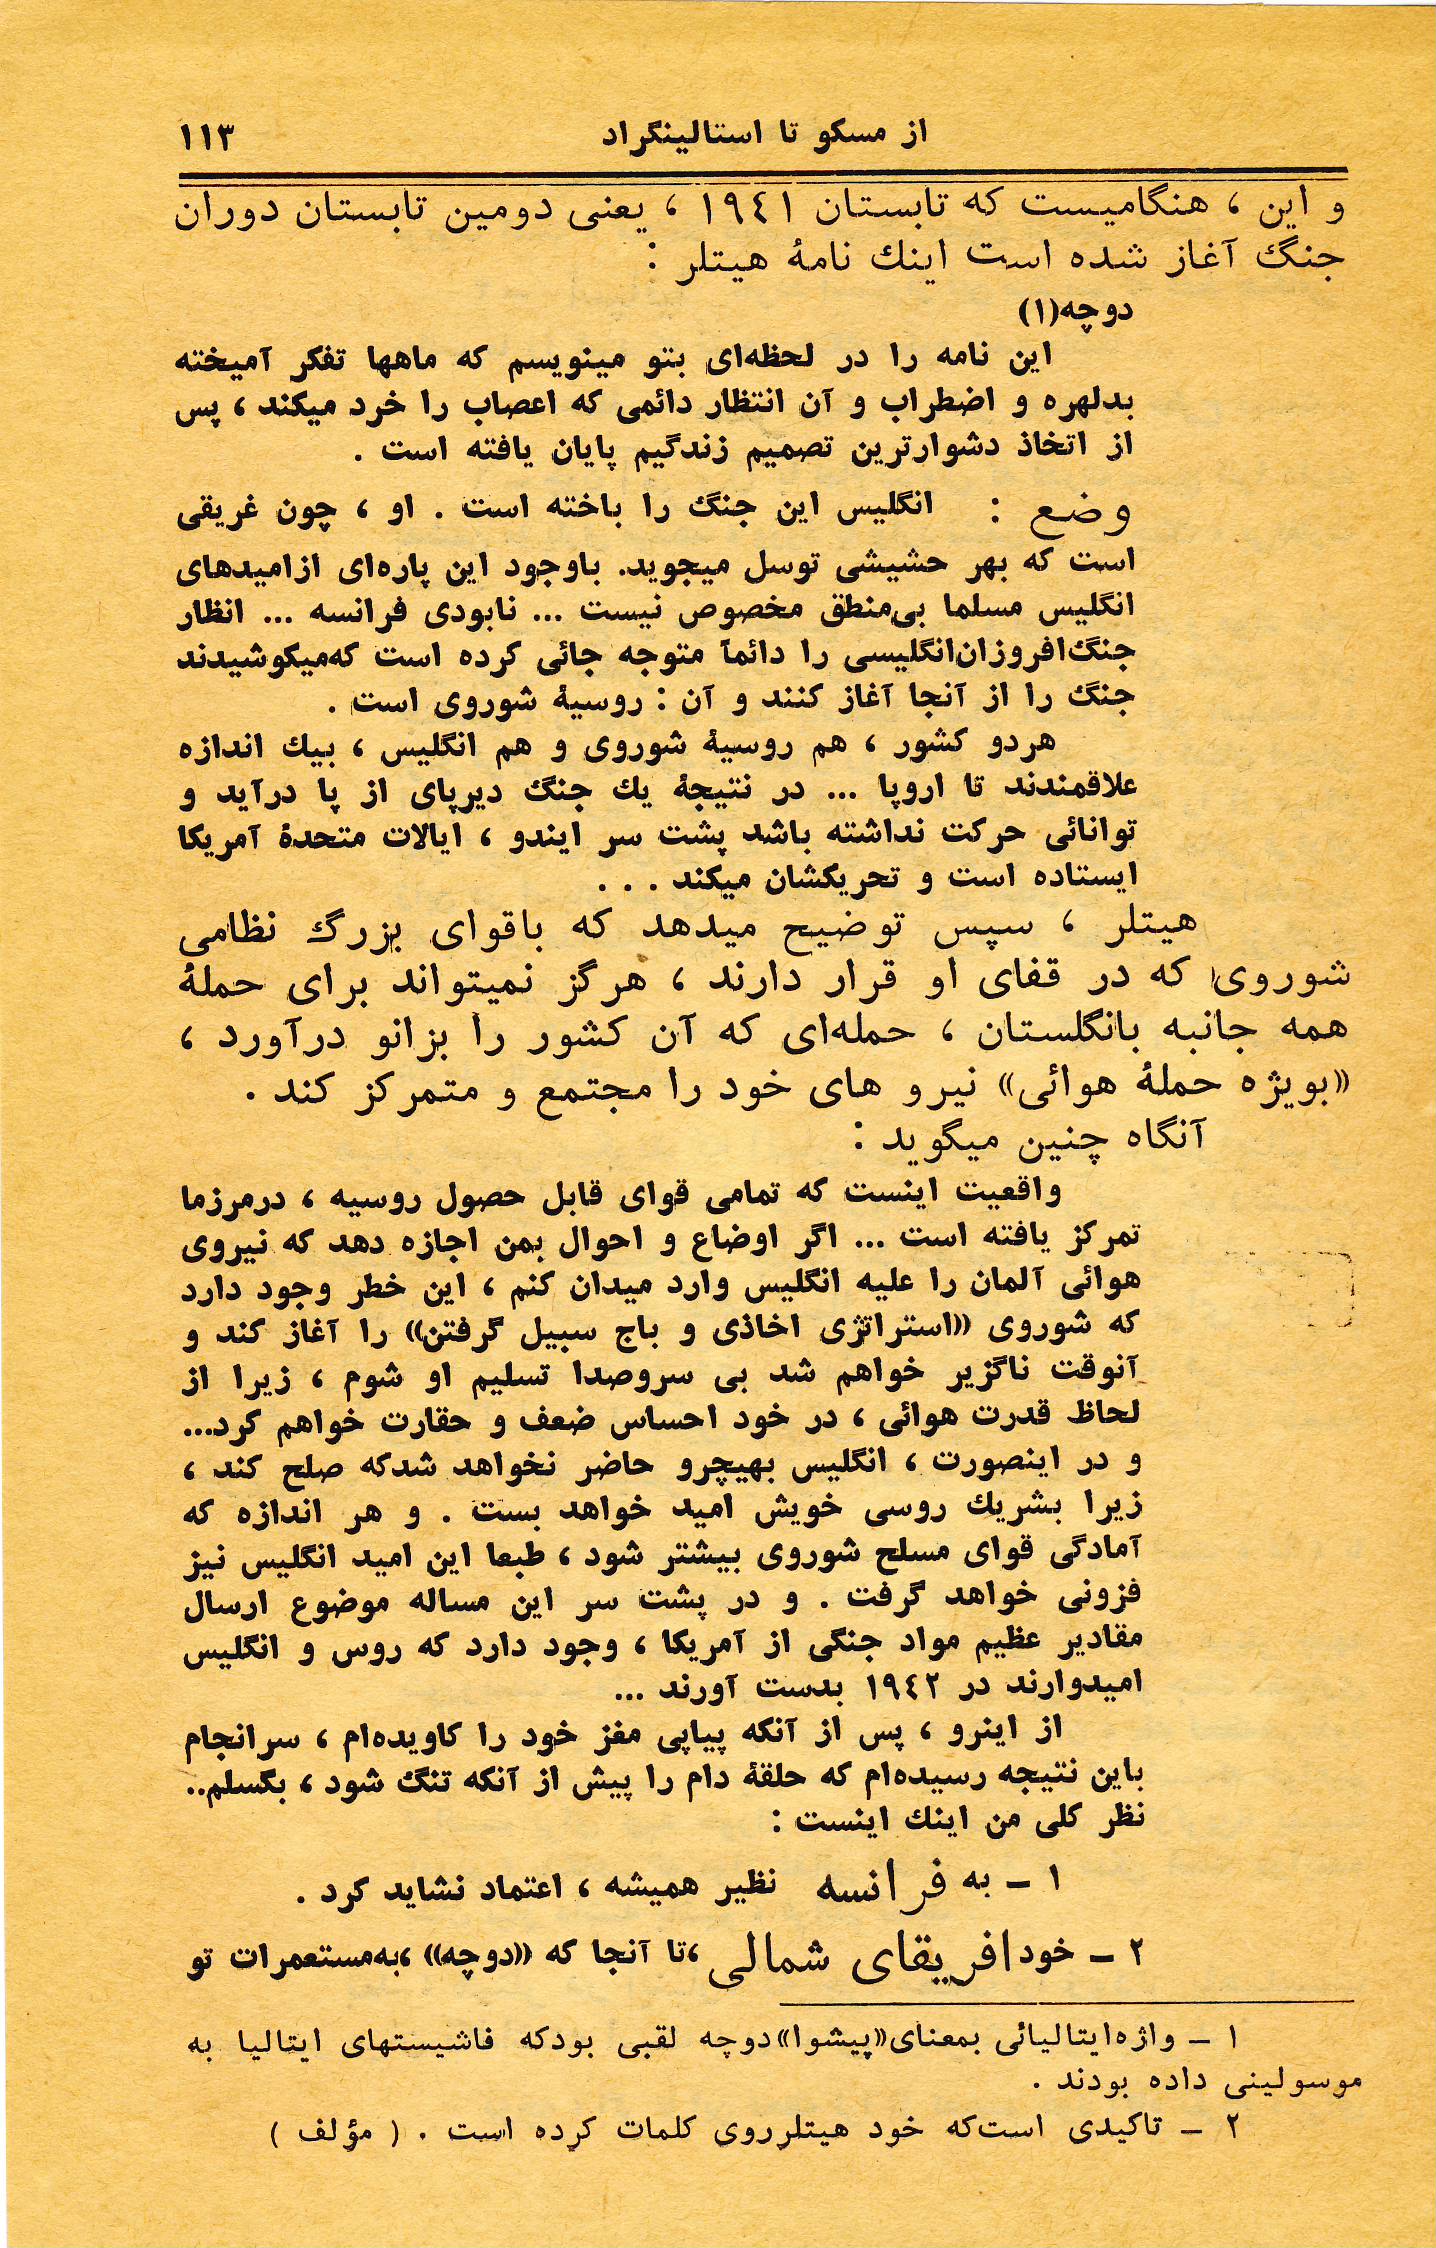 از مسکو تا استالینگراد ۱۱۳
و این ، هنگامیست که تابستان ۱۹٤۱ ، یعنی دومین تابستان دوران
جنگ آغاز شده است اینك نامهٔ هیتلر :
دوچه(۱)
این نامه را در لحظه‌ای بتو مینویسم که ماهها تفکر آمیخته
بدلهره و اضطراب و آن انتظار دائمی که اعصاب را خرد میکند ، پس
از اتخاذ دشوارترین تصمیم زندگیم پایان یافته است .
وضع : انگلیس این جنگ را باخته است . او ، چون غریقی
است که بهر حشیشی توسل میجوید. باوجود این پاره‌ای ازامیدهای
انگلیس مسلما بی‌منطق مخصوص نیست ... نابودی فرانسه ... انظار
جنگ‌افروزان‌انگلیسی را دائماً متوجه جائی کرده است که‌میکوشیدند
جنگ را از آنجا آغاز کنند و آن : روسیهٔ شوروی است .
هردو کشور ، هم روسیهٔ شوروی و هم انگلیس ، بیك اندازه
علاقمندند تا اروپا ... در نتیجهٔ یك جنگ دیرپای از پا درآید و
توانائی حرکت نداشته باشد پشت سر ایندو ، ایالات متحدهٔ آمریکا
ایستاده است و تحریکشان میکند . . .
هیتلر ، سپس توضیح میدهد که باقوای بزرگ نظامی
شوروی که در قفای او قرار دارند ، هرگز نمیتواند برای حملهٔ
همه جانبه بانگلستان ، حمله‌ای که آن کشور را بزانو درآورد ،
«بویژه حملهٔ هوائی» نیرو های خود را مجتمع و متمرکز کند .
آنگاه چنین میگوید :
واقعیت اینست که تمامی قوای قابل حصول روسیه ، درمرزما
تمرکز یافته است ... اگر اوضاع و احوال بمن اجازه دهد که نیروی
هوائی آلمان را علیه انگلیس وارد میدان کنم ، این خطر وجود دارد
که شوروی «استراتژی اخاذی و باج سبیل گرفتن» را آغاز کند و
آنوقت ناگزیر خواهم شد بی سروصدا تسلیم او شوم ، زیرا از
لحاظ قدرت هوائی ، در خود احساس ضعف و حقارت خواهم کرد...
و در اینصورت ، انگلیس بهیچرو حاضر نخواهد شدکه صلح کند ،
زیرا بشریك روسی خویش امید خواهد بست . و هر اندازه که
آمادگی قوای مسلح شوروی بیشتر شود ، طبعا این امید انگلیس نیز
فزونی خواهد گرفت . و در پشت سر این مساله موضوع ارسال
مقادیر عظیم مواد جنگی از آمریکا ، وجود دارد که روس و انگلیس
امیدوارند در ۱۹٤۲ بدست آورند ...
از اینرو ، پس از آنکه پیاپی مغز خود را کاویده‌ام ، سرانجام
باین نتیجه رسیده‌ام که حلقهٔ دام را پیش از آنکه تنگ شود ، بگسلم..
نظر کلی من اینك اینست :
۱ ـ به فرانسه نظیر همیشه ، اعتماد نشاید کرد .
۲ ـ خودافریقای شمالی ،تا آنجا که «دوچه» ،به‌مستعمرات تو
۱ ـ واژه‌ایتالیائی بمعنای«پیشوا»دوچه لقبی بودکه فاشیستهای ایتالیا به
موسولینی داده بودند .
۲ ـ تاکیدی است‌که خود هیتلرروی کلمات کرده است . ( مؤلف )